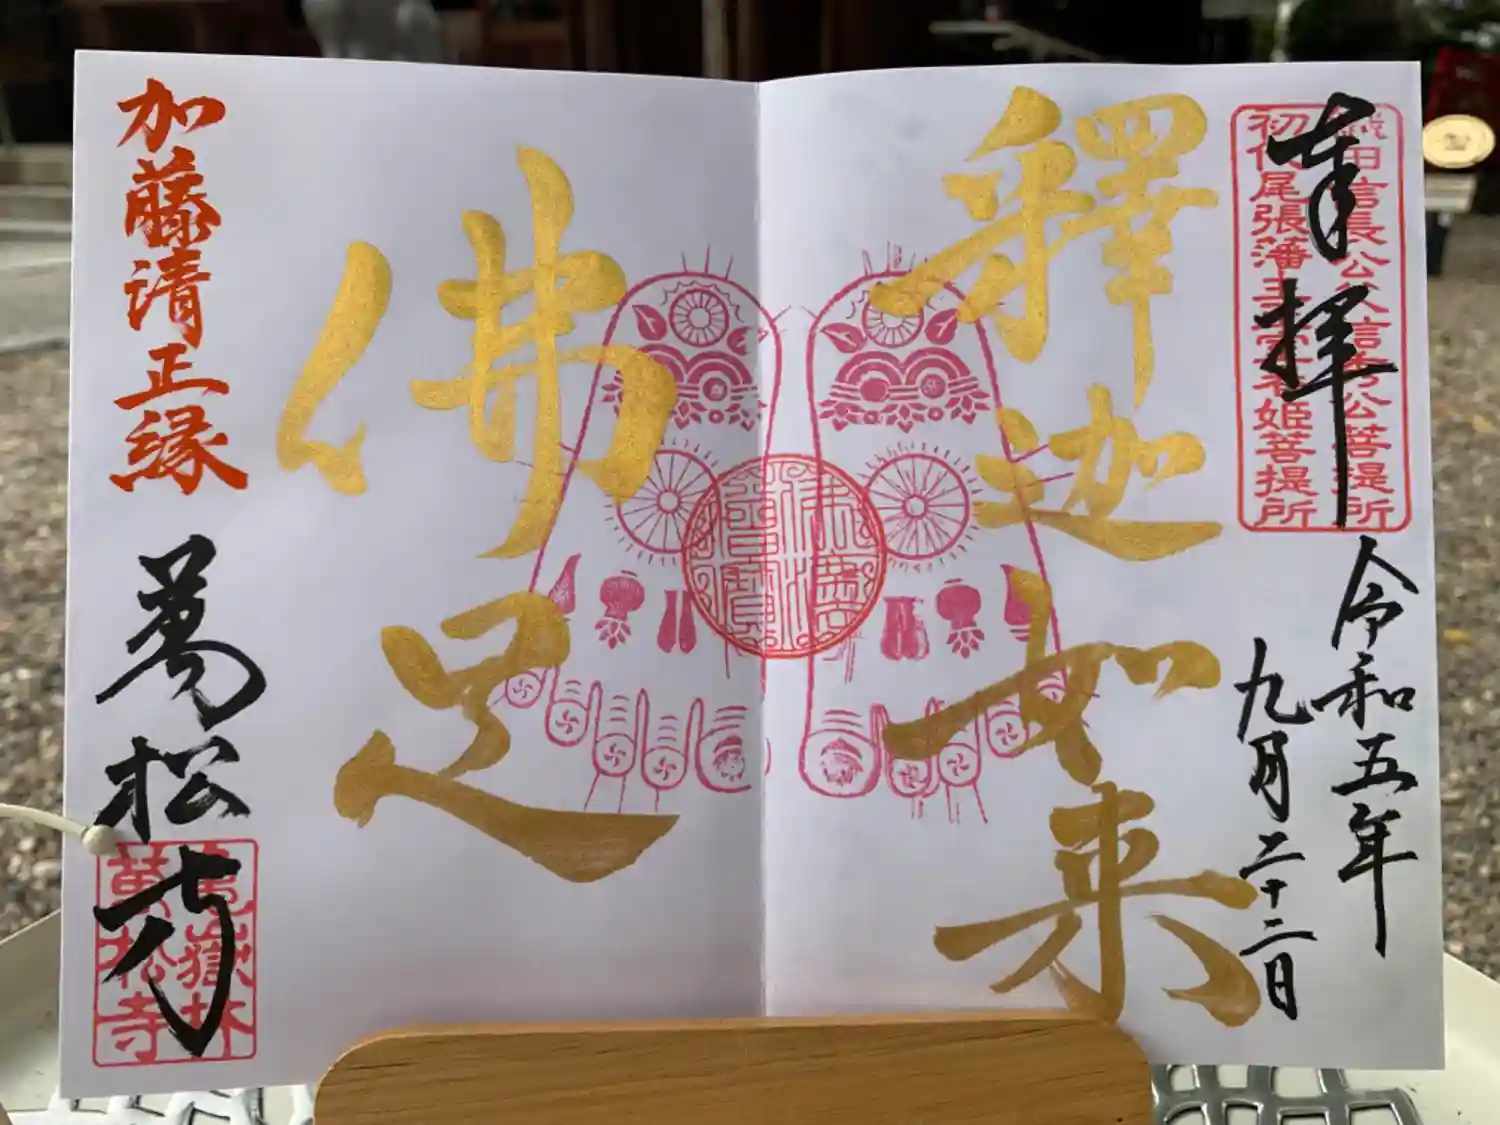 奉拝
織田信長公父信秀公菩提所
初代尾張藩主室春姫菩提所
令和五年
九月二十二日
釋迦如来
佛足
加藤清正縁
萬松寺
亀嶽林
萬松寺